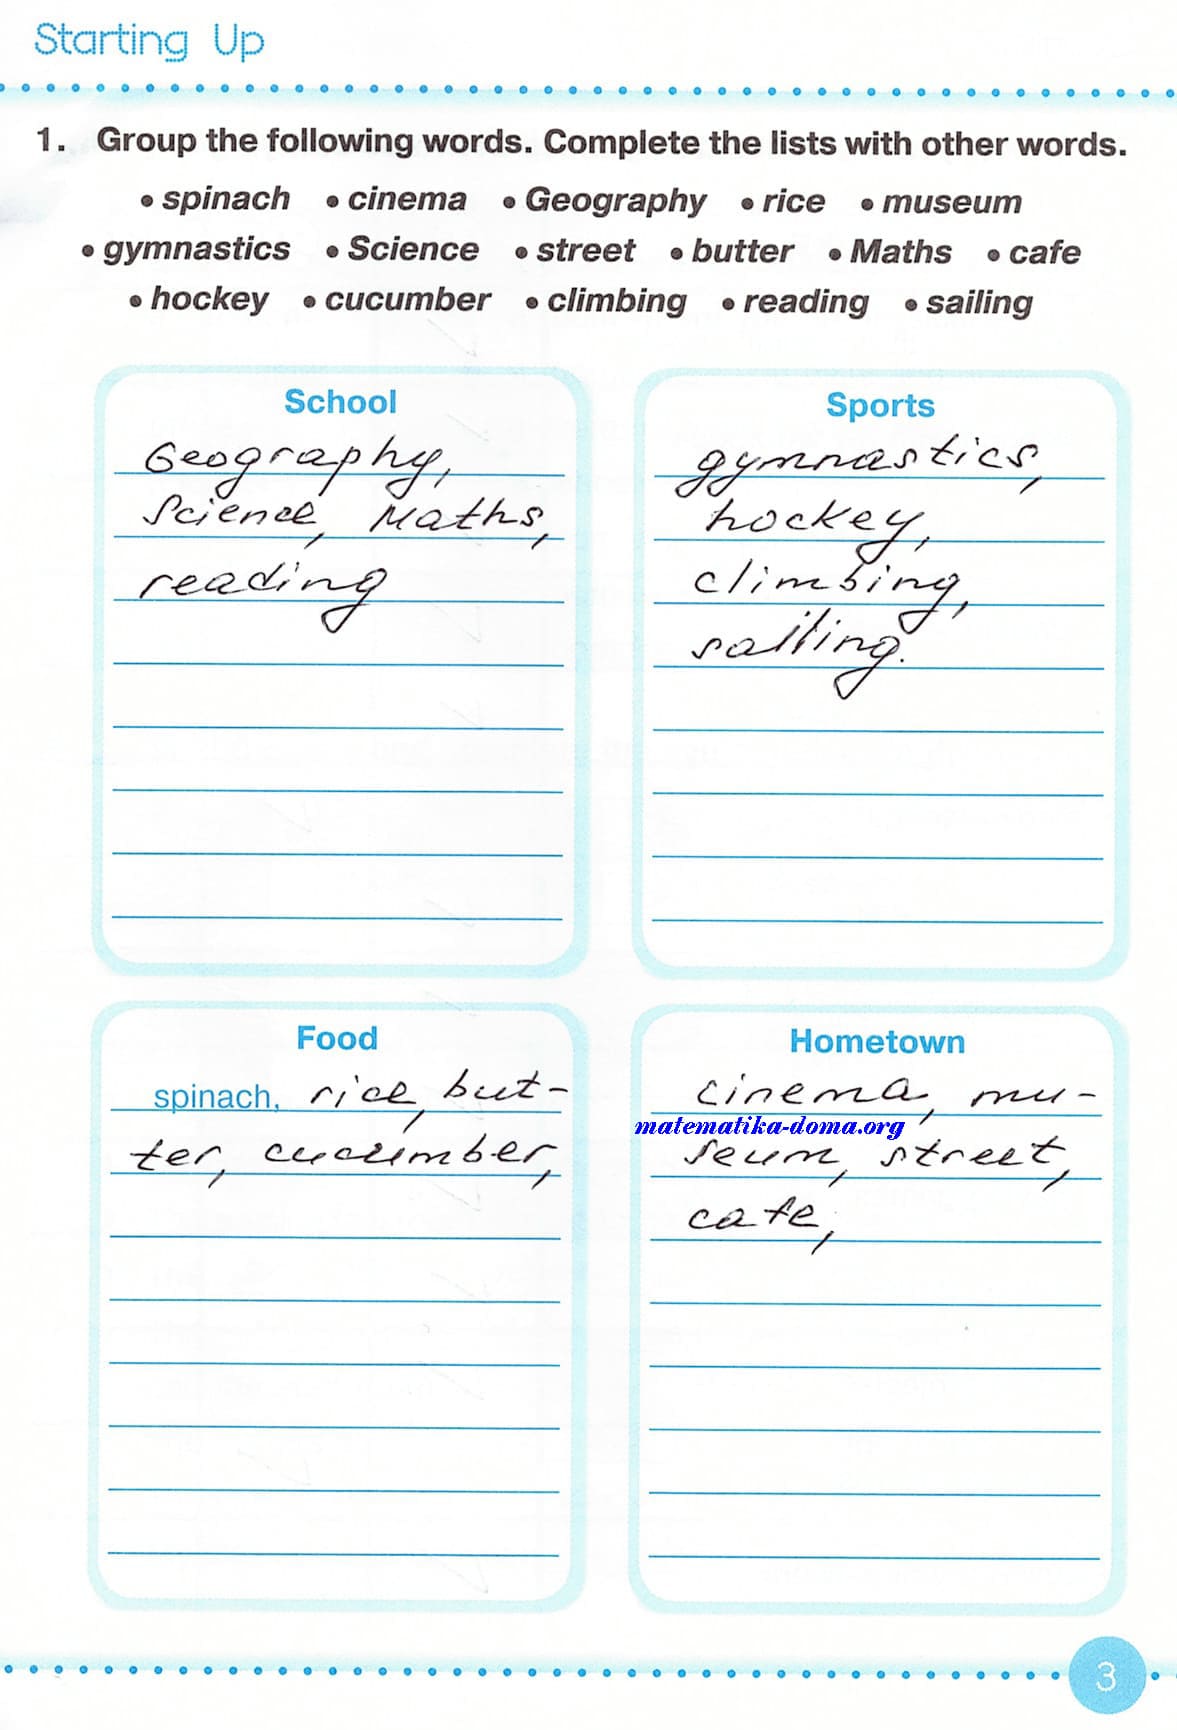 Starting Up
1. Group the following words. Complete the lists with other words.
• spinach • cinema • Geography • rice • museum
• gymnastics • Science • street • butter • Maths • cafe
• hockey • cucumber • climbing • reading • sailing
School
Geography,
Science, Maths,
reading
Sports
gymnastics,
hockey,
climbing,
sailing.
Food
spinach, rice, but-
ter, cucumber,
Hometown
cinema, mu-
matematika-doma.org
seum, street,
cafe,
3